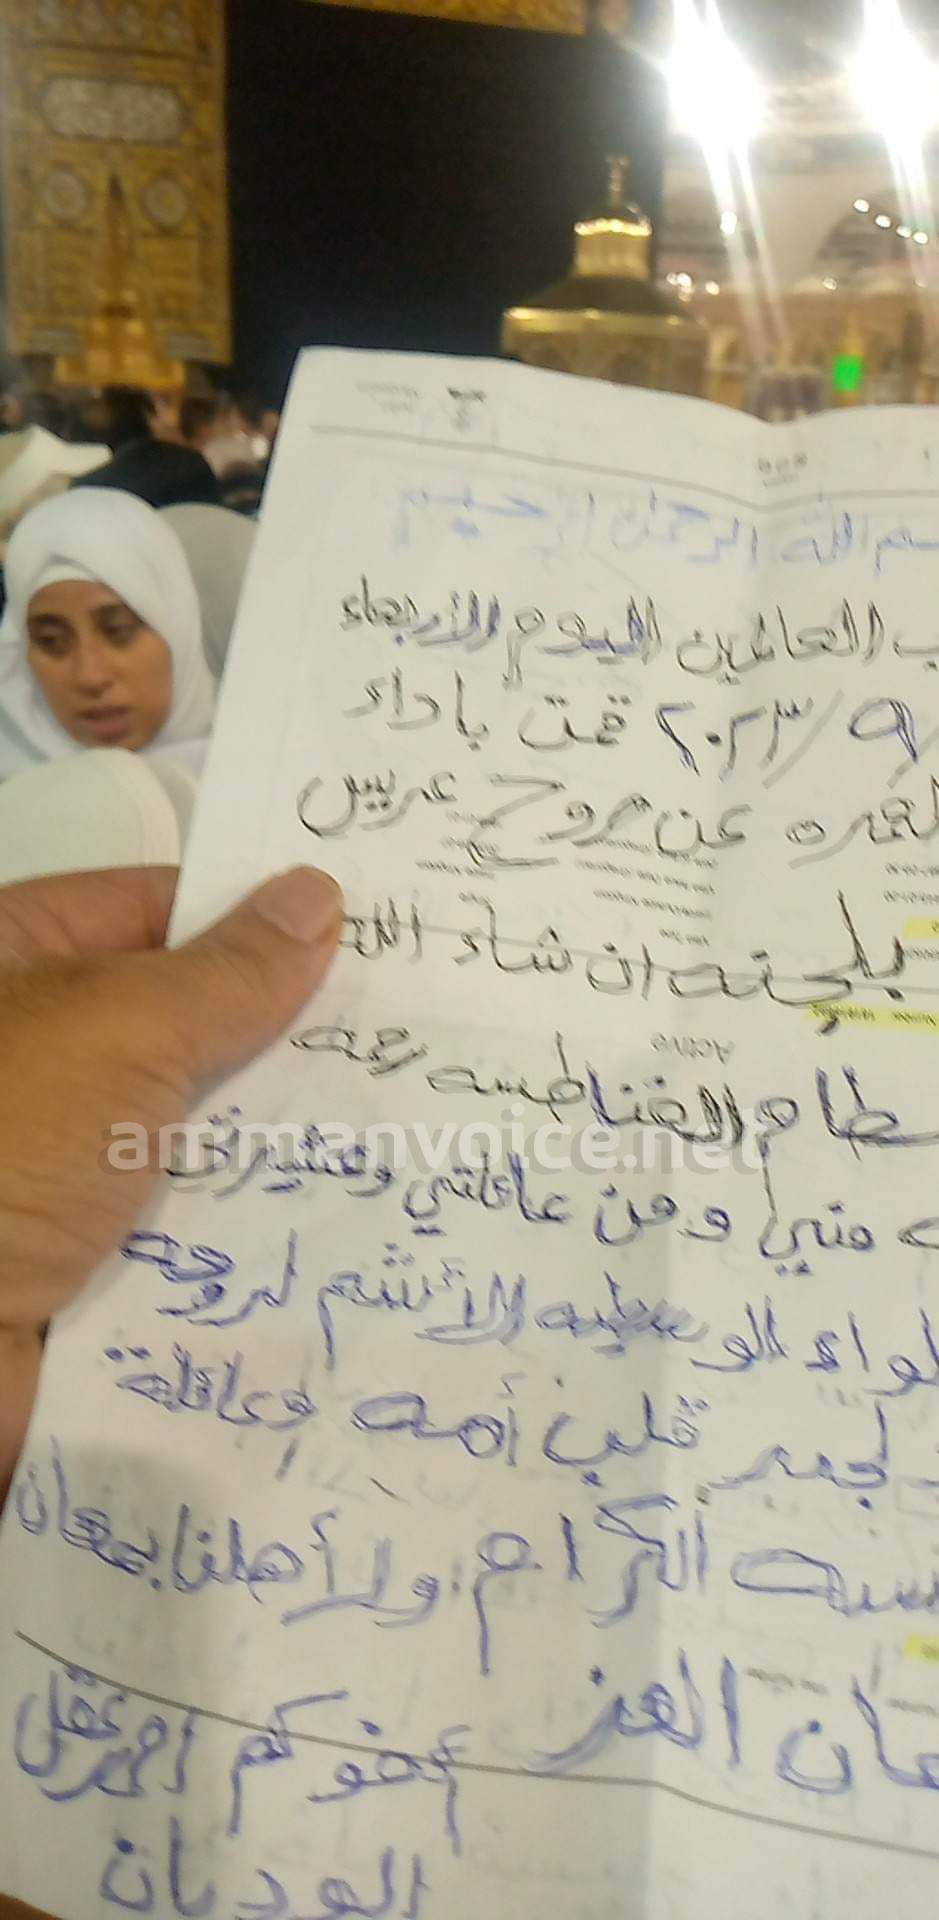 سم الله الرحمان الرحيم
ب العالمين اليوم الأربعاء
/٩/٢٠٢٣ قمت باداء
لعمره عن روح عريس
بلجنه ان شاء الله
Active
سطام القناطسه رحمه
ه مني ومن عائلتي وعشيرتي
لواء الوسطيه الاشم لروحه
لجبر قلب أمه وعائلة
سه الكرام ولأهلنا بمعان
عان العز
أخوكم احمد عقل
الوديان
ammanvoice.net